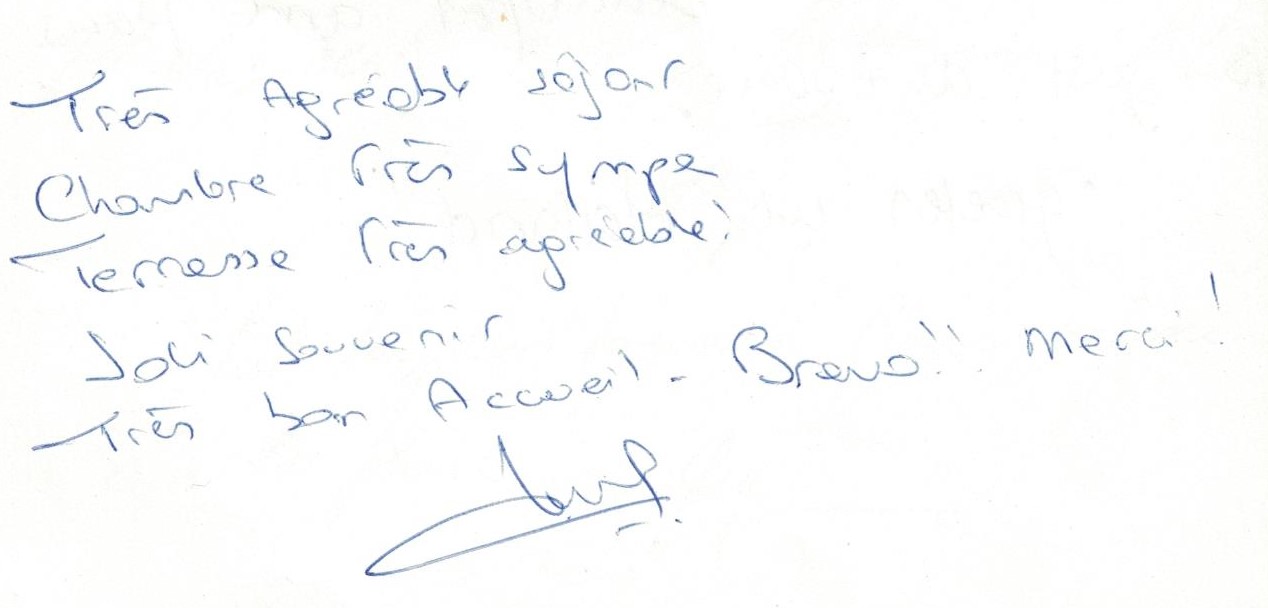 Très Agréable séjour
Chambre très sympa
Terrasse très agréable!
Joli souvenir
Très bon Accueil. Bravo!! merci!